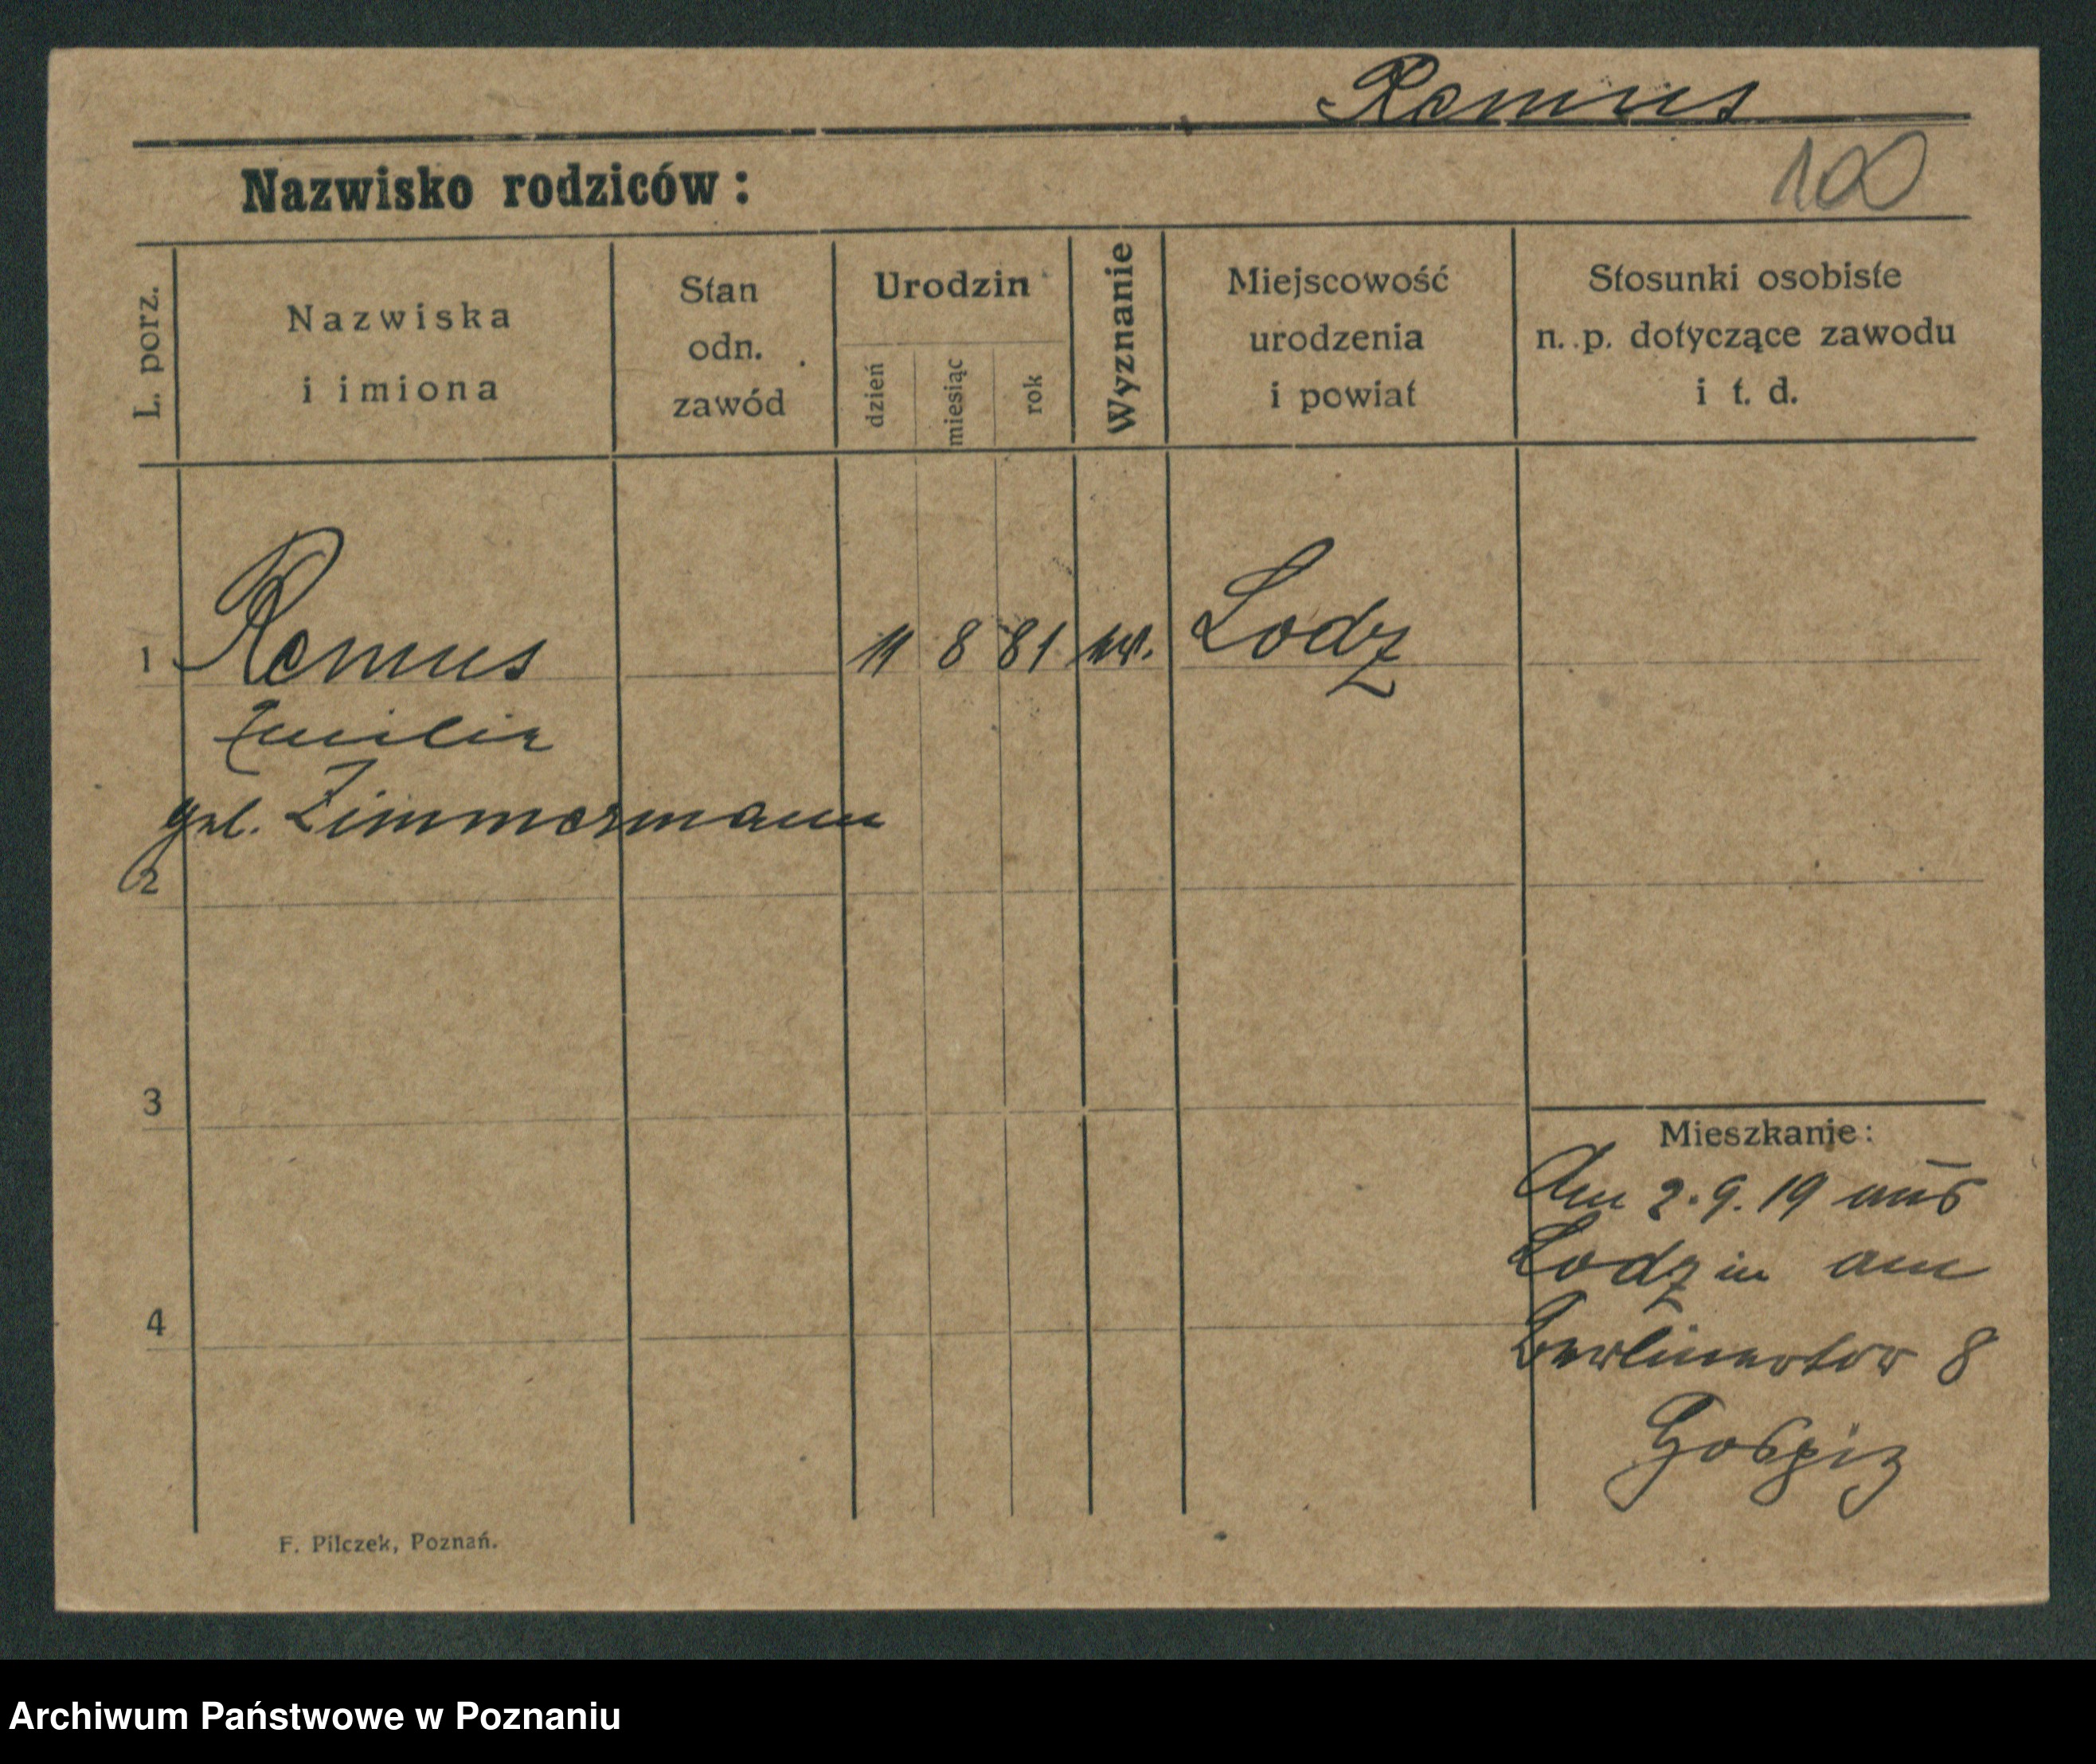 Remus
Nazwisko rodziców:
100
L. porz.
Nazwiska
i imiona
Stan
odn.
zawód
Urodzin
dzień
miesiąc
rok
Wyznanie
Miejscowość
urodzenia
i powiat
Stosunki osobiste
n. p. dotyczące zawodu
i t. d.
1 Remus 11 8 81 Lodz
Emilie
geb. Zimmermann
2
3
Mieszkanie:
Am 2.9.19 aus
Lodz in am
4
Berlinertor 8
Hospiz
F. Pilczek, Poznań.
Archiwum Państwowe w Poznaniu